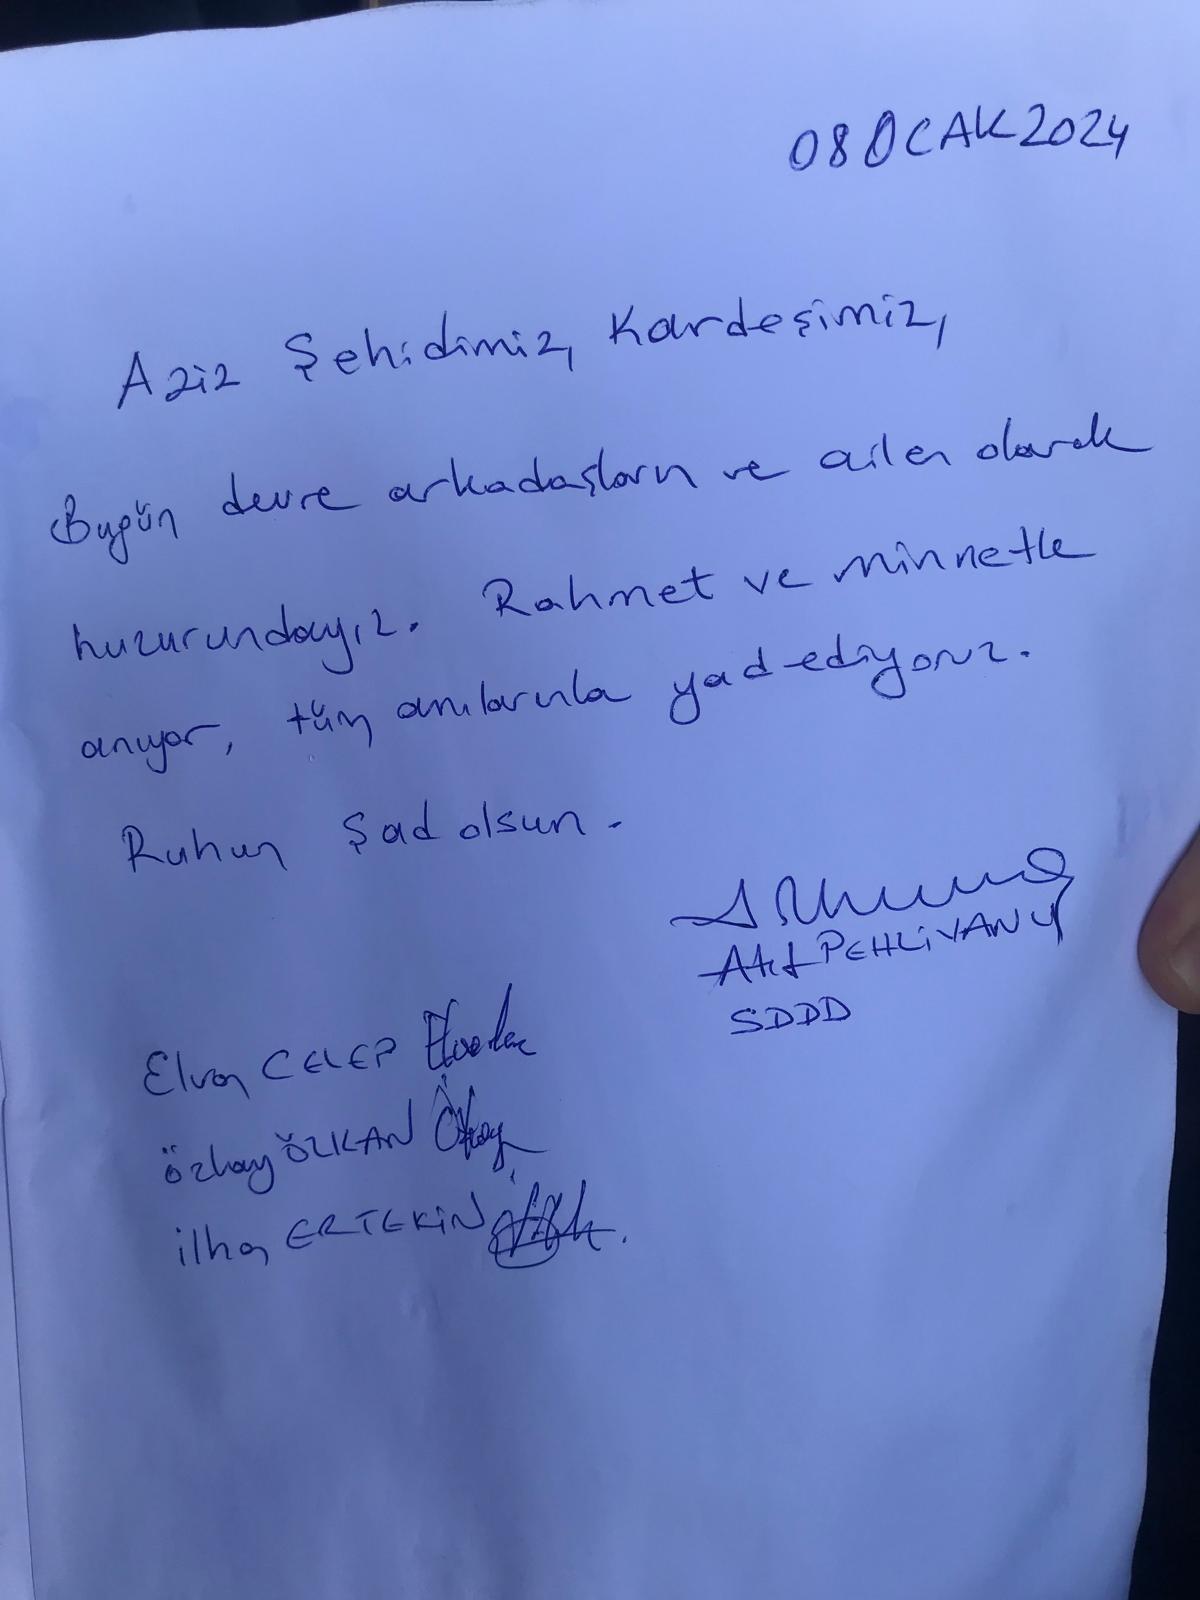 08 OCAK 2024
Aziz Şehidimiz, Kardeşimiz,
Bugün devre arkadaşların ve ailen olarak
huzurundayız. Rahmet ve minnetle
anıyor, tüm anılarınla yad ediyoruz.
Ruhun Şad olsun.
Akif PEHLİVANLI
SDDD
Elvan CELEP
Özkay ÖZKAN
İlhan ERTEKİN